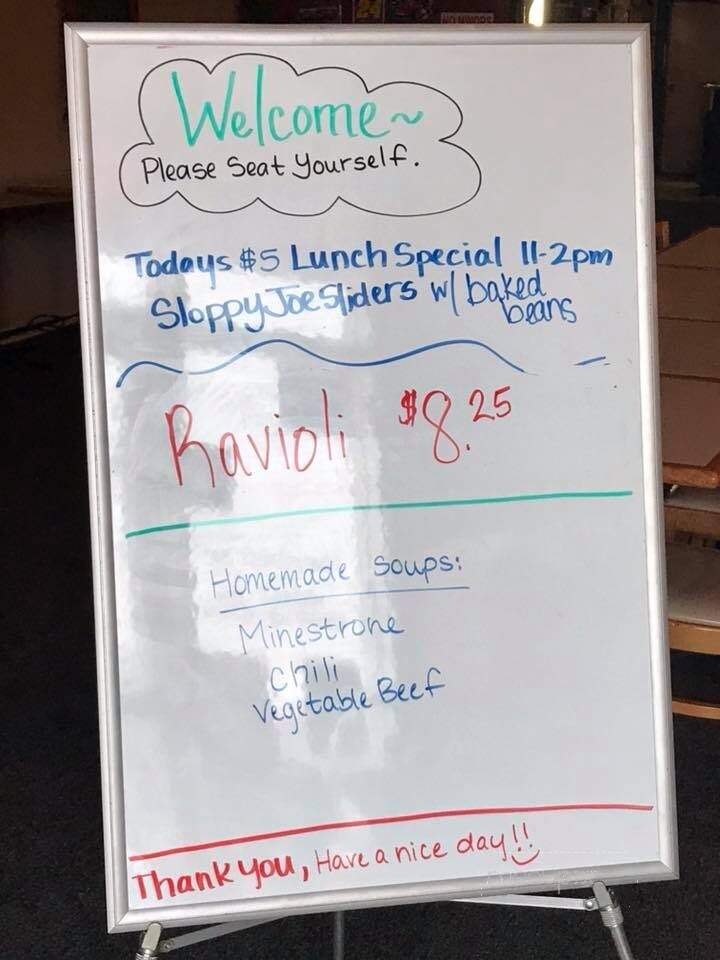 NO MINORS
Welcome~
Please Seat Yourself.
Todays $5 Lunch Special 11-2pm
Sloppy Joe Sliders w/ baked
beans
Ravioli $8.25
Homemade Soups:
Minestrone
Chili
Vegetable Beef
Thank you, Have a nice day!!